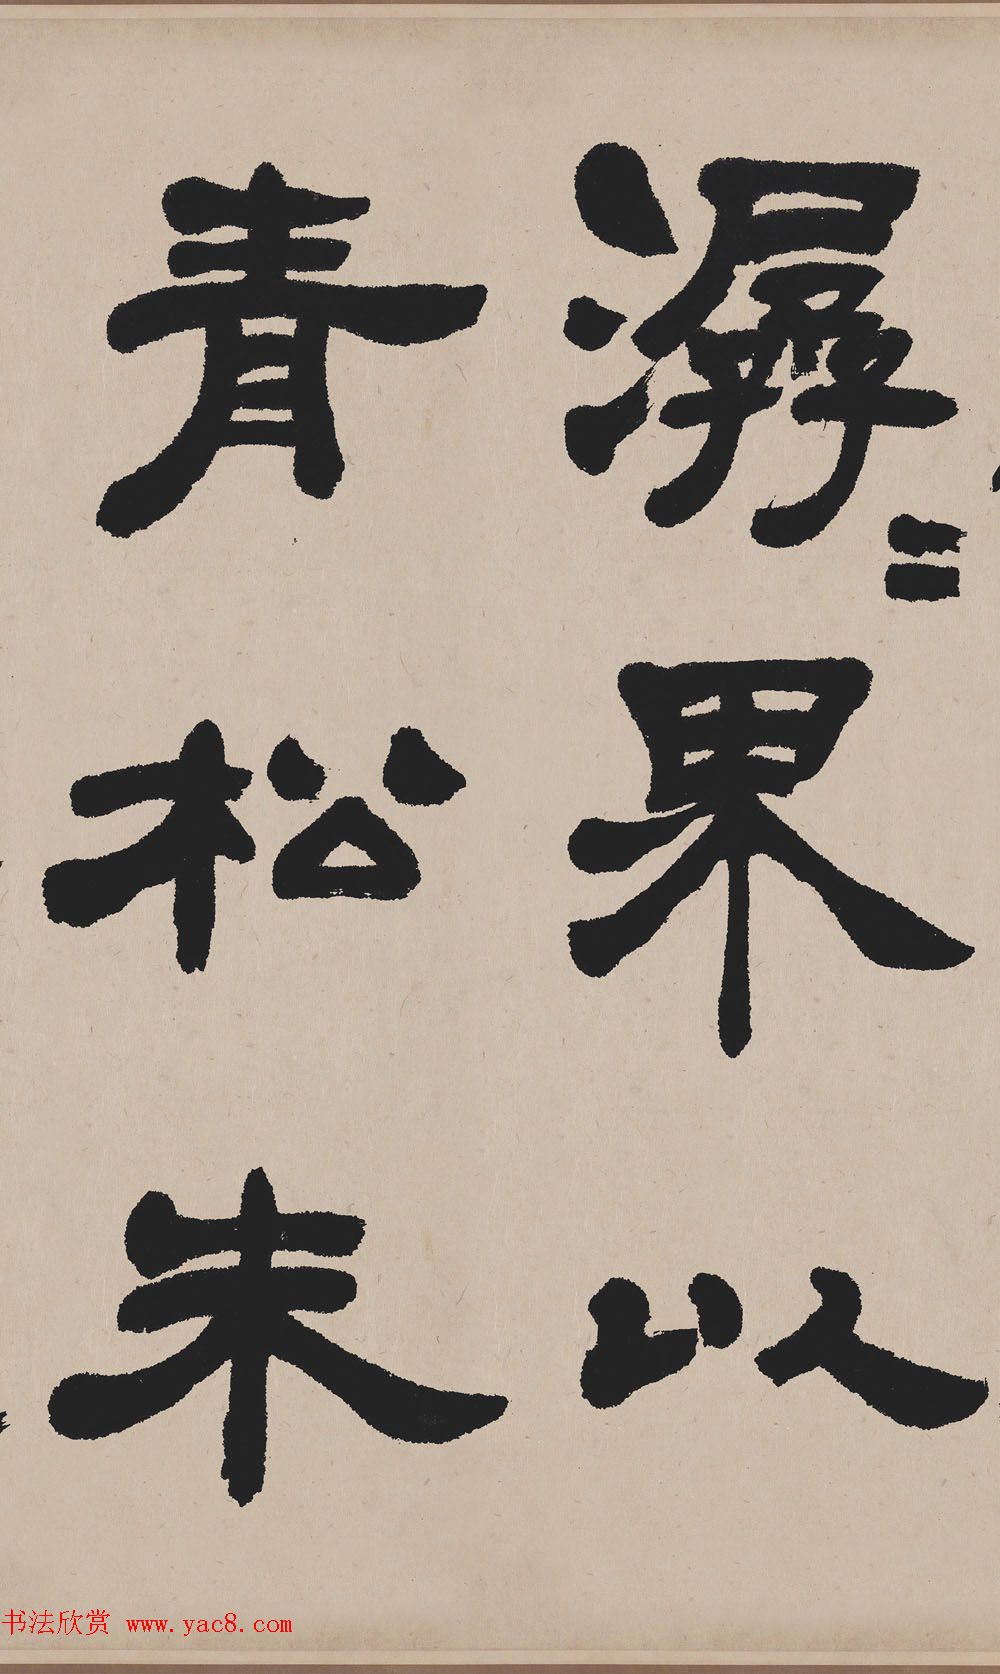 潺〻果以
青松朱
书法欣赏 www.yac8.com